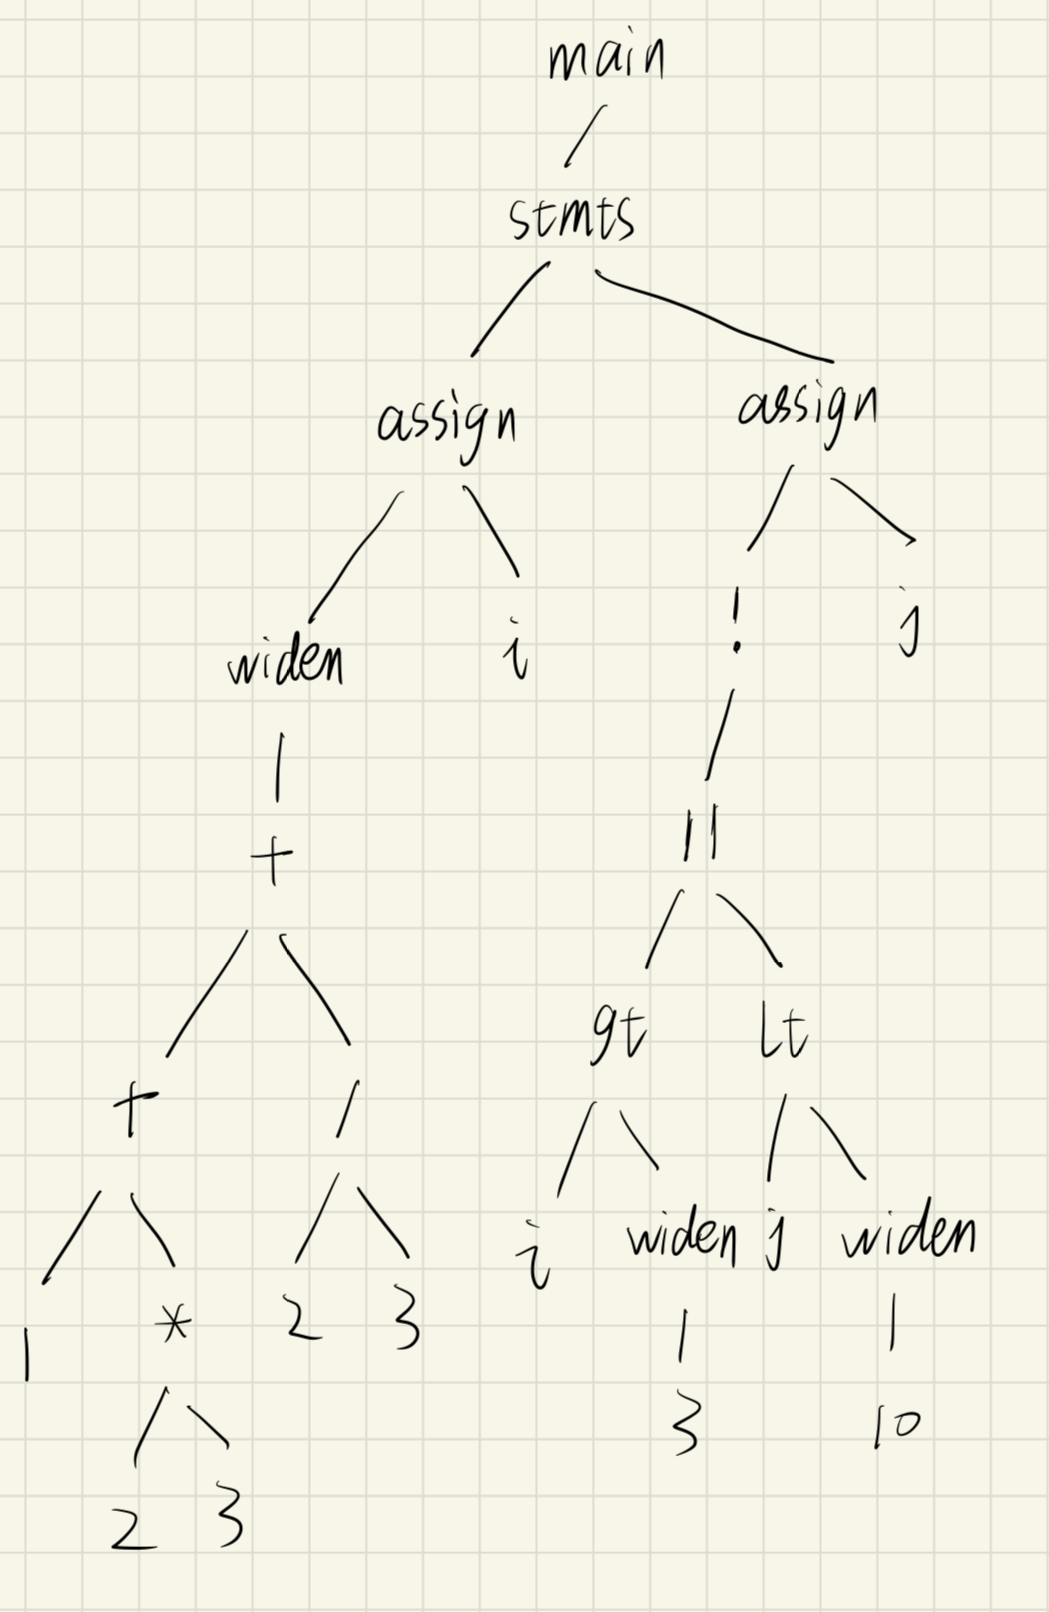 main
stmts
assign assign
widen i ! j
+ ||
+ / gt lt
1 * 2 3 i widen j widen
2 3 3 10